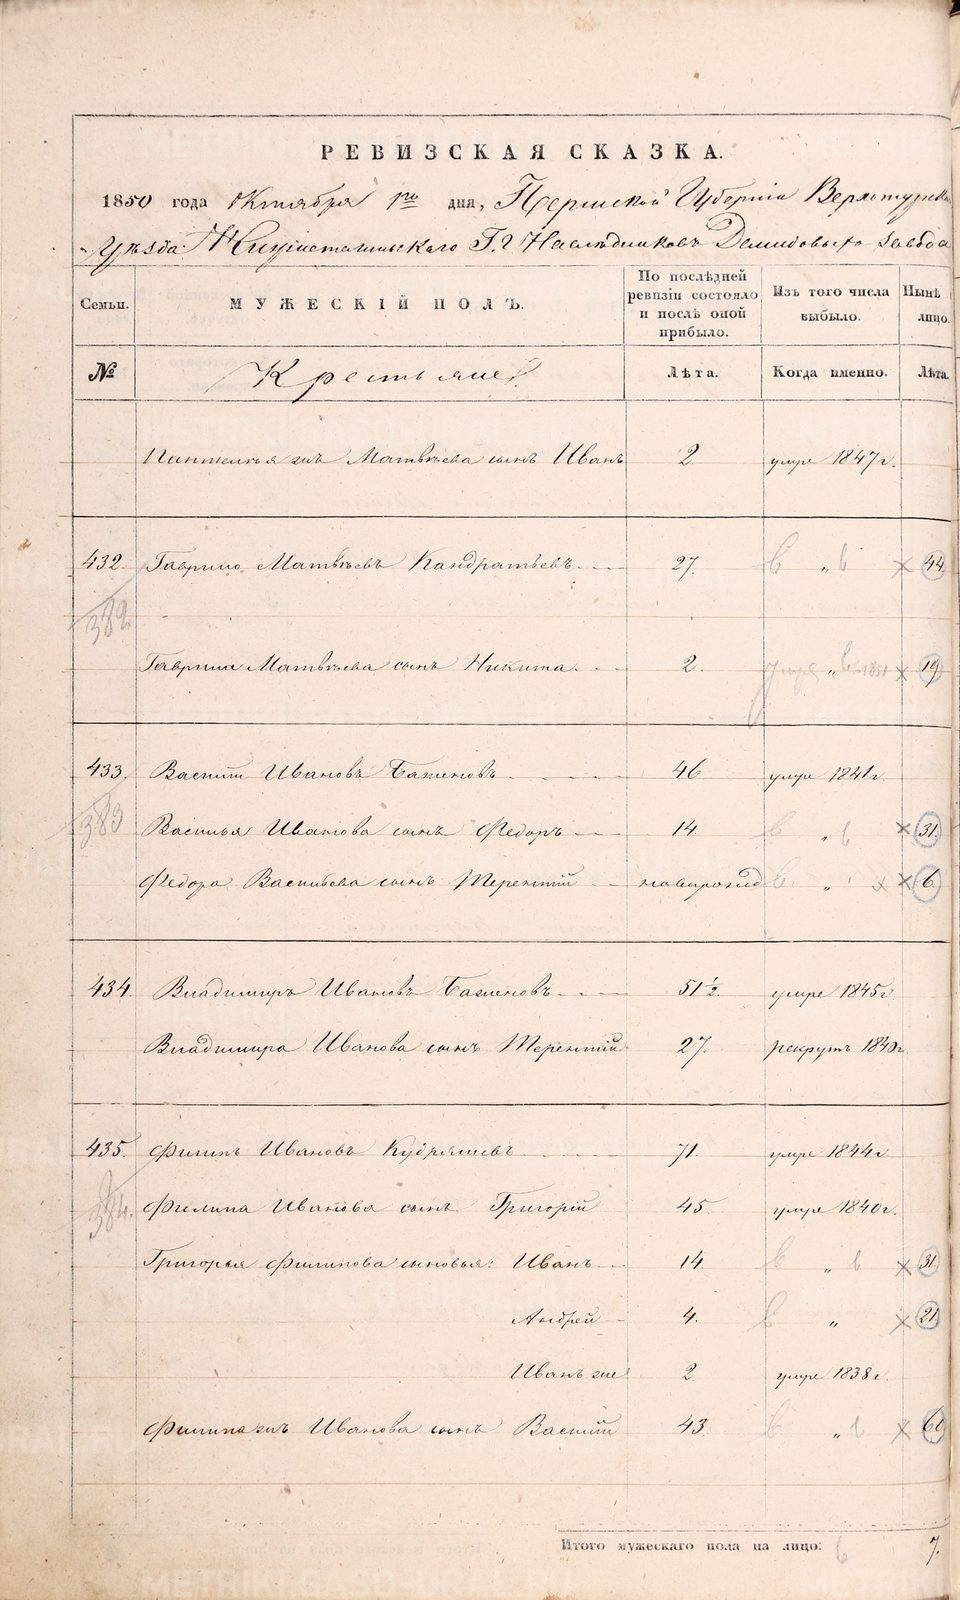 РЕВИЗСКАЯ СКАЗКА.
1850 года Октября 1го дня, Пермской Губерніи Верхотурска
Уѣзда Нижнетагильскаго Г.Г. Наслѣдниковъ Демидовыхъ завода
Семьи. МУЖЕСКІЙ ПОЛЪ. По послѣдней ревизіи состояло и послѣ оной прибыло. Изъ того числа выбыло. Нынѣ лицо.
№ Крестьяне Лѣта. Когда именно. Лѣта.
Пантелѣя жъ Матвѣева сынъ Иванъ 2 умре 1847г.
432. Гаврило Матвѣевъ Кандратьевъ 27. в " в × 44
382
Гаврила Матвѣева сынъ Никита 2. умре " в 1851 × 19
433. Василій Ивановъ Баженовъ 46 умре 1841г
383 Василья Иванова сынъ Федоръ 14 в " в × 31.
Федора Васильева сынъ Терентій новорожд в " × × 6
434. Владимиръ Ивановъ Баженовъ 51 1/2. умре 1845г
Владимира Иванова сынъ Терентій 27. рекрутъ 1840г
435. Филипъ Ивановъ Кудряшевъ 71 умре 1844г
384. Филипа Иванова сынъ Григорій 45 умре 1840г.
Григорья Филипова сыновья: Иванъ 14. в " в × 31.
Андрей 4. в " × 21
Иванъ же 2 умре 1838г.
Филипа жъ Иванова сынъ Василій 43. в " в × 60
Итого мужескаго пола на лицо: 6 7.